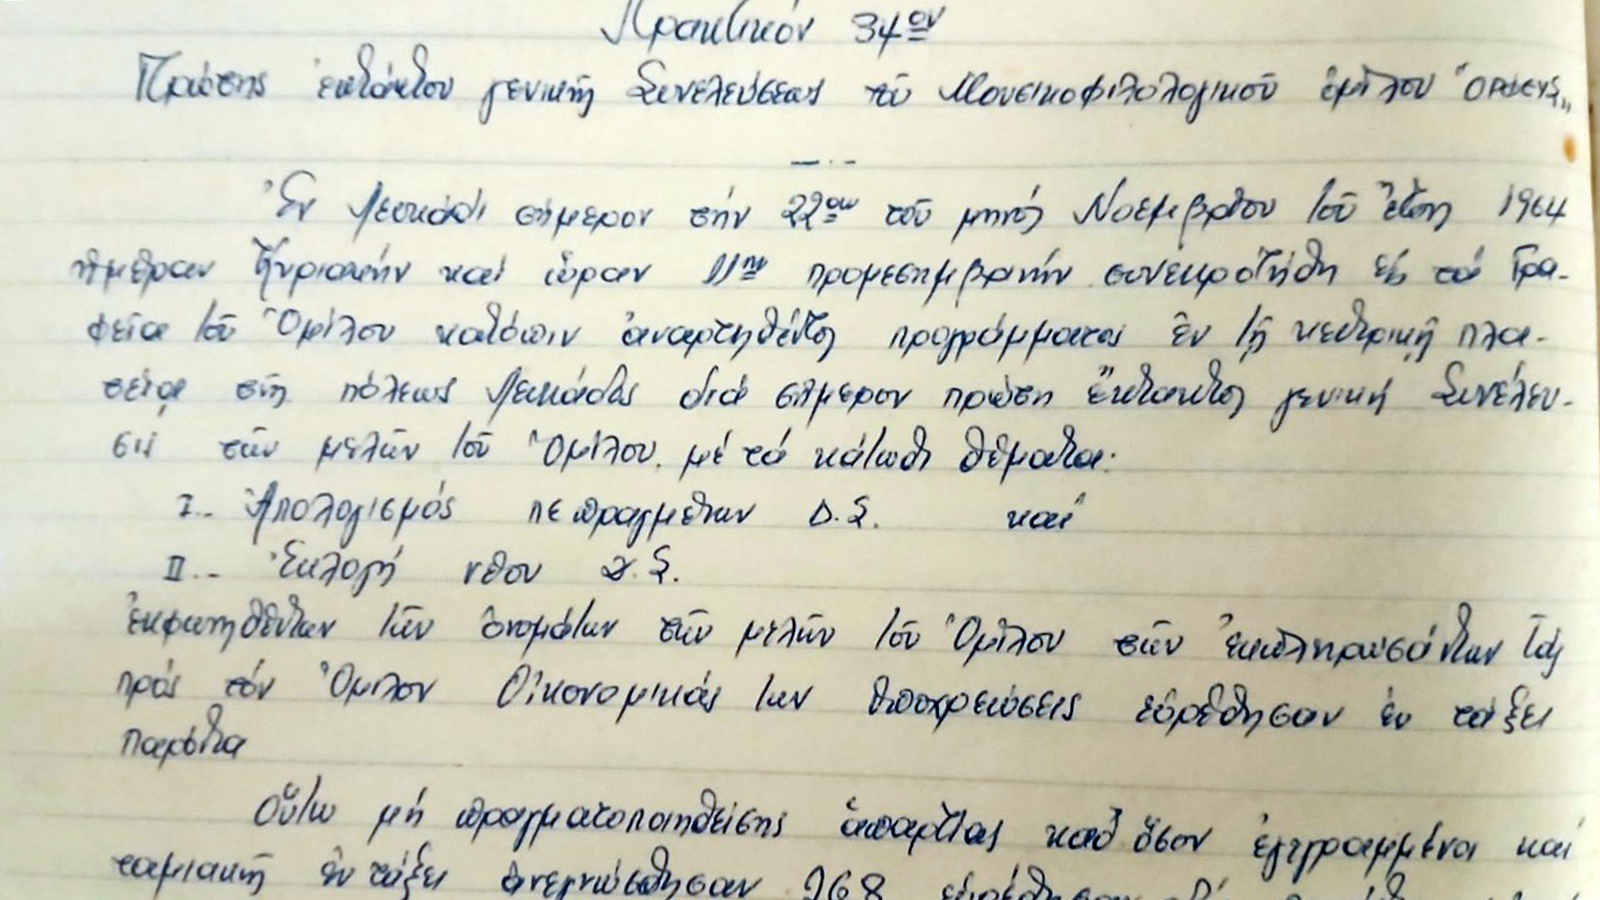 Πρακτικόν 34ον
Πρώτης ἐκτάκτου γενικῆς Συνελεύσεως τοῦ Μουσικοφιλολογικοῦ ὁμίλου "ΟΡΦΕΥΣ„
Ἐν Λευκάδι σήμερον τήν 22αν τοῦ μηνός Νοεμβρίου τοῦ ἔτους 1964
ἡμέραν Κυριακήν καί ὥραν 11ην προμεσημβρινήν συνεκροτήθη εἰς τά Γρα-
φεῖα τοῦ Ὁμίλου κατόπιν ἀναρτηθέντος προγράμματος ἐν τῇ κεντρικῇ πλα-
τείᾳ τῆς πόλεως Λευκάδος διά σήμερον πρώτη ἔκτακτος γενική Συνέλευ-
σις τῶν μελῶν τοῦ Ὁμίλου. μέ τά κάτωθι θέματα:
I.- Ἀπολογισμός πεπραγμένων Δ.Σ. καί
II.- Ἐκλογή νέου Δ.Σ.
ἐκφωνηθέντων τῶν ὀνομάτων τῶν μελῶν τοῦ Ὁμίλου τῶν ἐκπληρωσάντων τάς
πρός τόν Ὅμιλον Οἰκονομικάς των ὑποχρεώσεις εὑρέθησαν ἐν τάξει
παρόντα
Οὕτω μή πραγματοποιηθείσης ἀπαρτίας καθ' ὅσον ἐγγεγραμμένοι καί
ταμιακῇ ἐν τάξει ἀνεγνώσθησαν 268 εὑρέθησαν